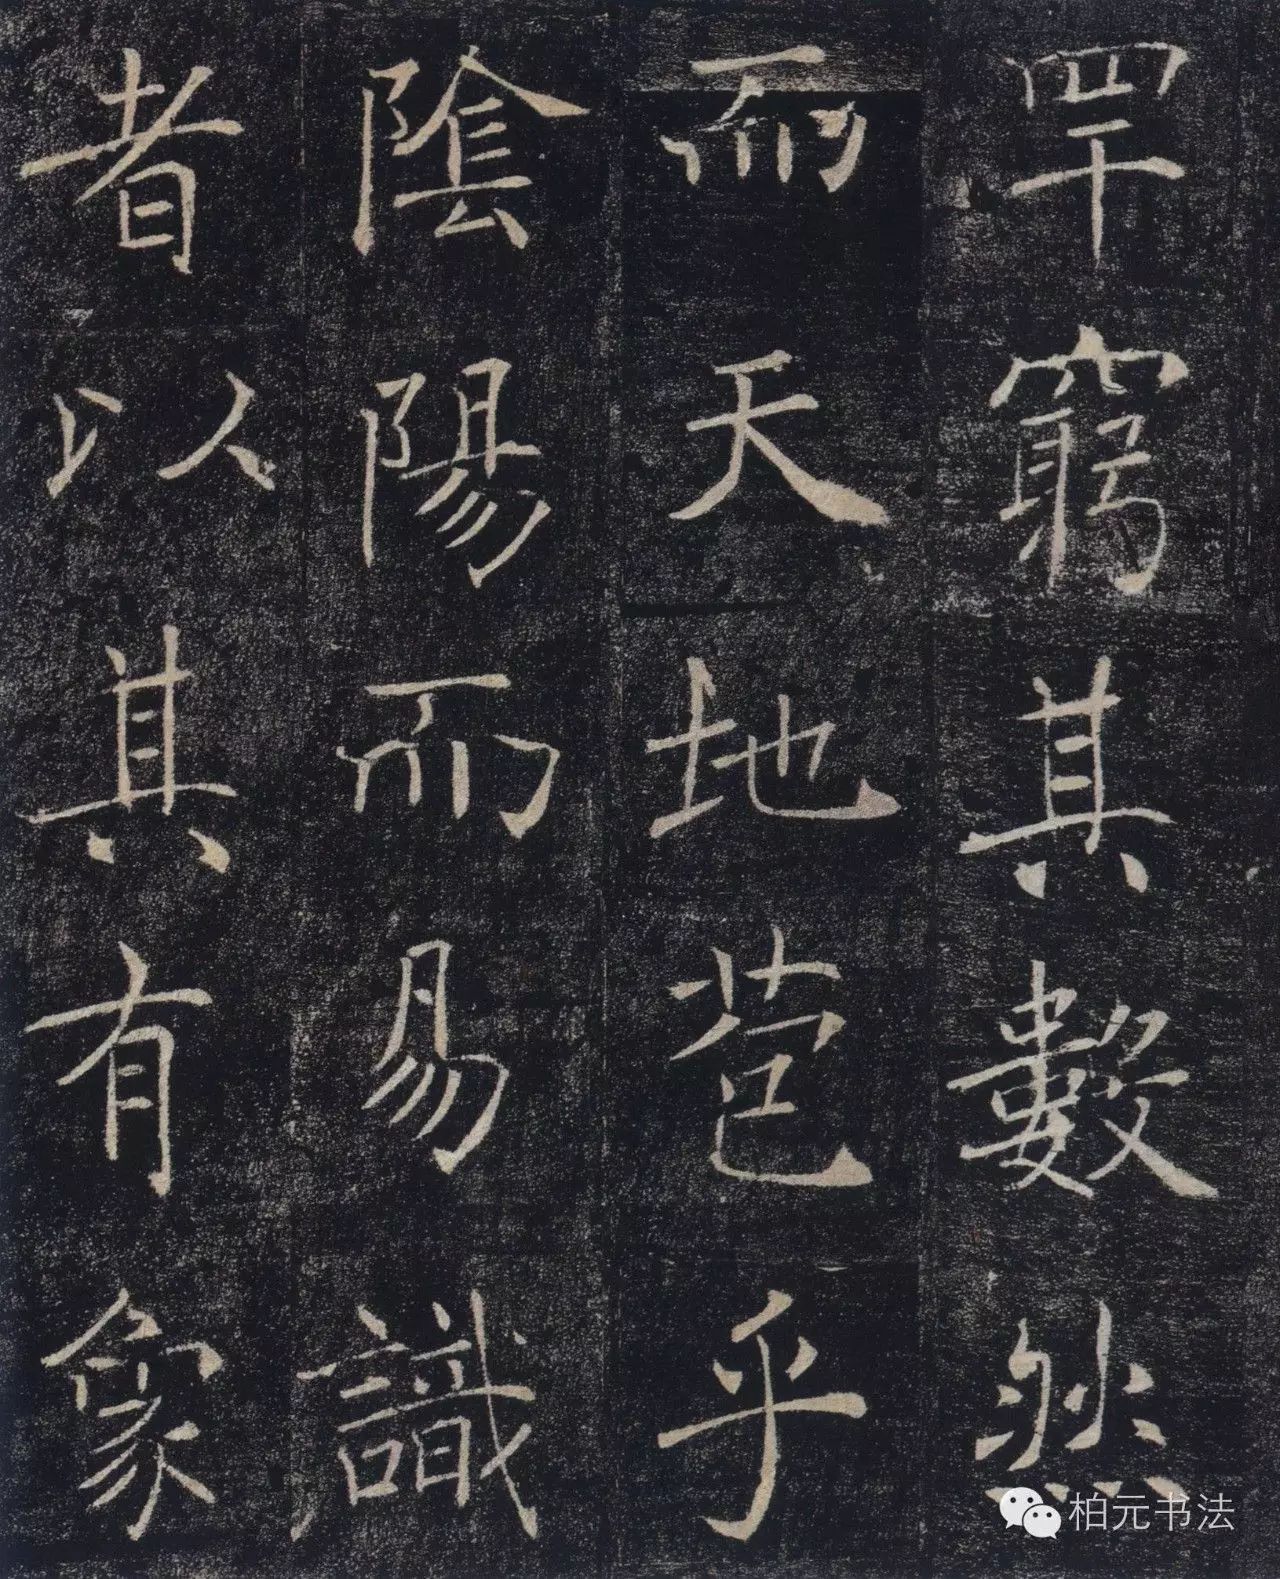 罕窮其數然
而天地苞乎
陰陽而易識
者以其有象
柏元书法